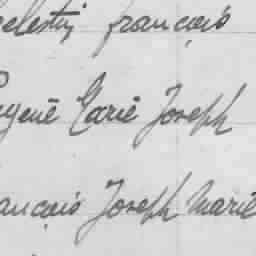 celestin françois
Eugene Marie Joseph
françois Joseph Marie